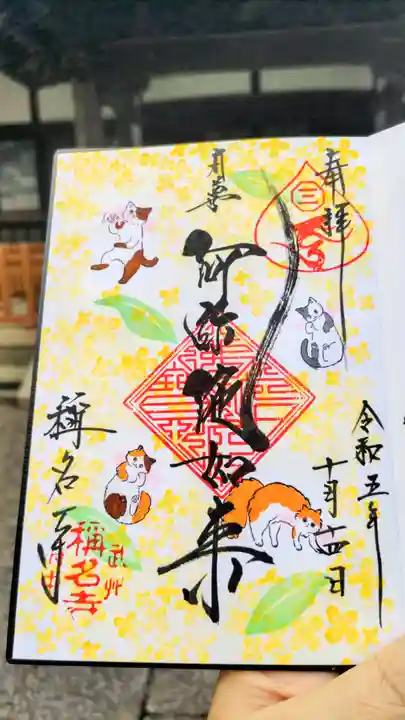 奉拝
三
令和五年
十月十四日
阿弥陀如来
稱名寺
武州
稱名寺